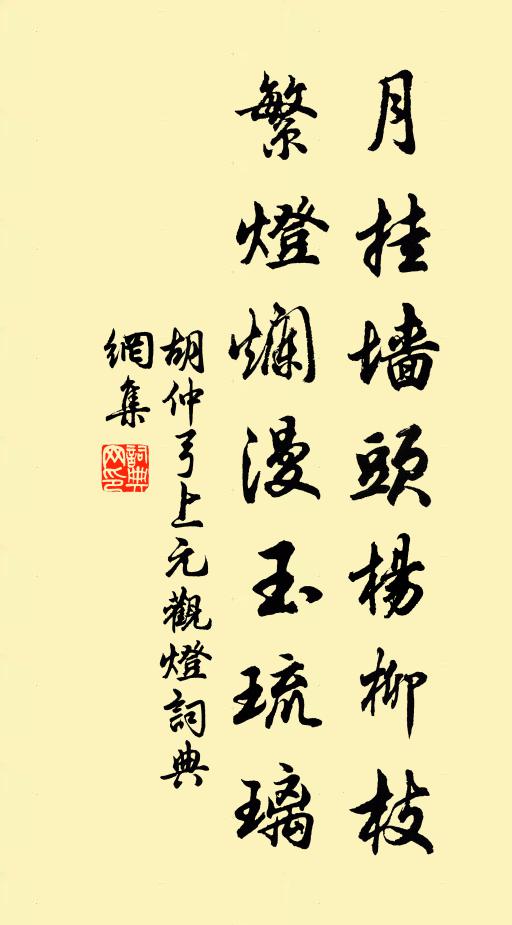 月挂墙頭楊柳枝
繁燈爛漫玉琉璃
胡仲弓上元觀燈詞典
網集
詞典
网印